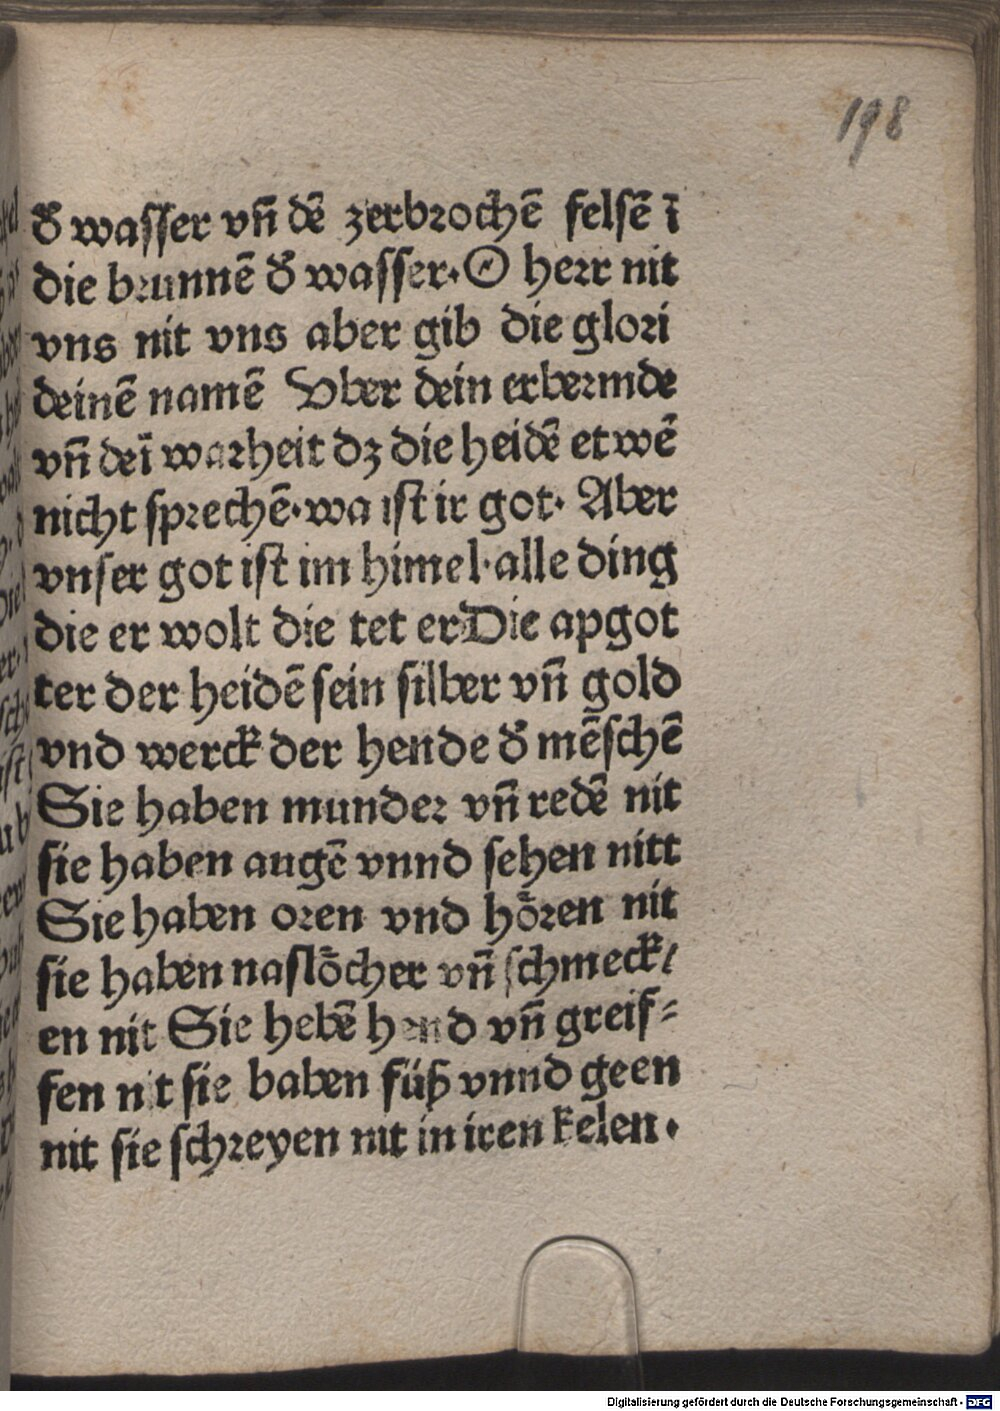 198
dˀ wasser vn̄ dē zerbrochē felsē ī
die brunnē dˀ wasser· O herr nit
vns nit vns aber gib die glori
deinē namē Vber dein erbermde
vn̄ deī warheit dz die heidē etwē
nicht sprechē· wa ist ir got· Aber
vnser got ist im himel· alle ding
die er wolt die tet er Die apgot
ter der heidē sein silber vn̄ gold
vnd werck der hende dˀ mēschē
Sie haben munder vn̄ redē nit
sie haben augē vnnd sehen nitt
Sie haben oren vnd hoͤren nit
sie haben nasloͤcher vn̄ schmeck/
en nit Sie hebē hend vn̄ greif⸗
fen nit sie baben füß vnnd geen
nit sie schreyen nit in iren kelen·
Digitalisierung gefördert durch die Deutsche Forschungsgemeinschaft - DFG